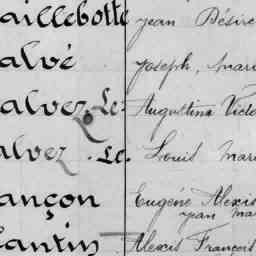 aillebotte Jean Désiré
alvé Joseph, Mari
alvez, Le Augustina Victo
alvez, Le Louis Mari
ançon Eugène Alexis
Jean Mar
antin Alexis François